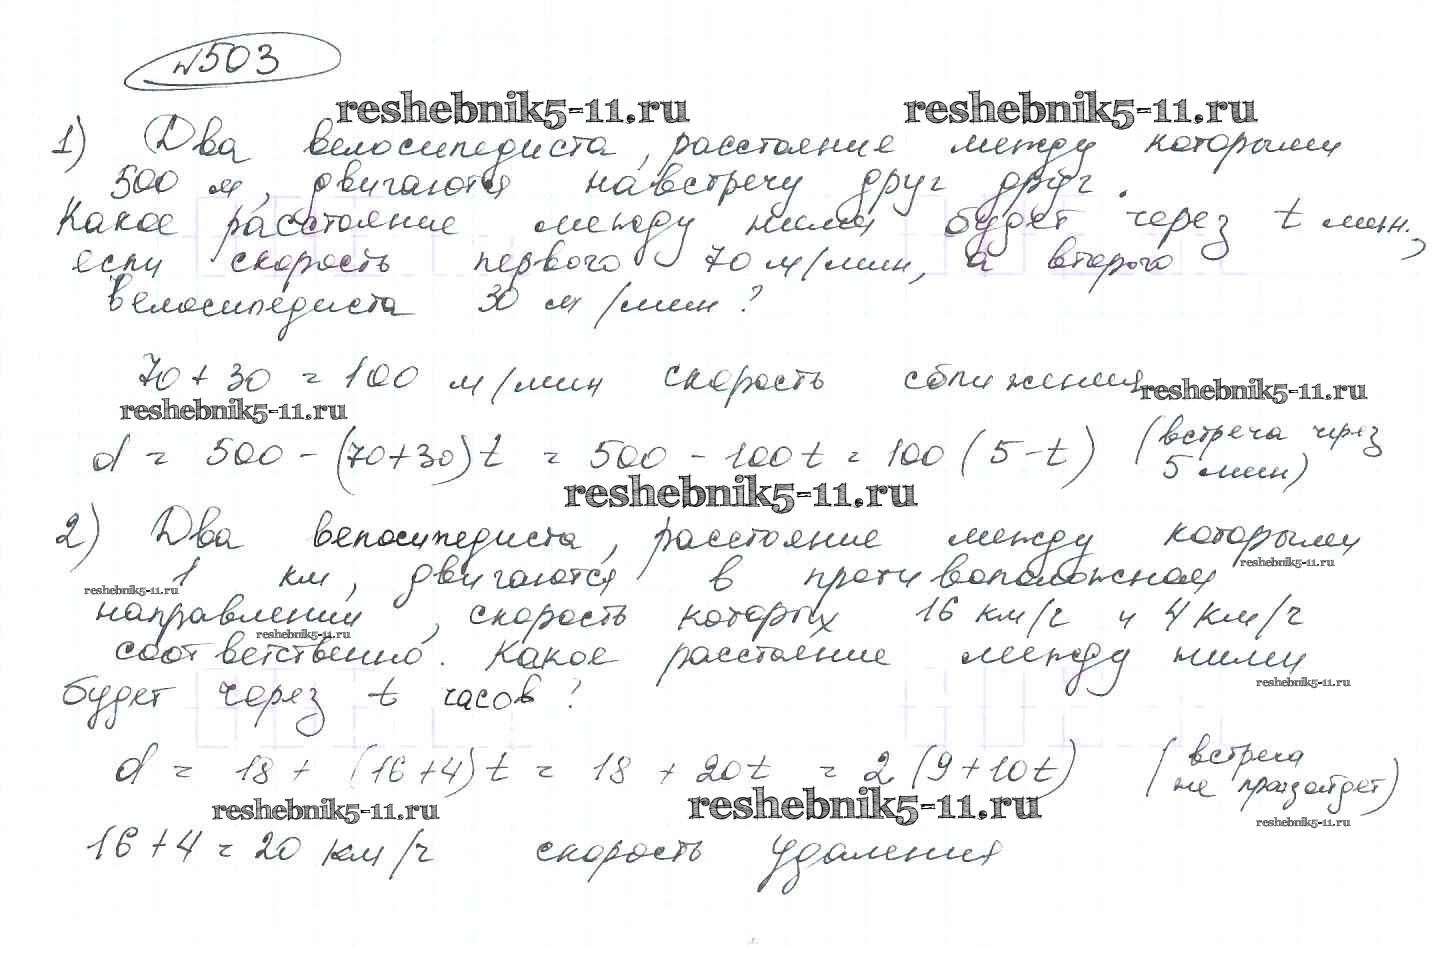 №503
reshebnik5-11.ru reshebnik5-11.ru
1) Два велосипедиста, расстояние между которыми
500 м, двигаются навстречу друг друг.
Какое расстояние между ними будет через t мин.,
если скорость первого 70 м/мин, а второго
велосипедиста 30 м/мин?
70 + 30 = 100 м/мин скорость сближения
reshebnik5-11.ru reshebnik5-11.ru
d = 500 - (70+30)t = 500 - 100t = 100 (5-t) (встреча через
5 мин)
reshebnik5-11.ru
2) Два велосипедиста, расстояние между которыми
reshebnik5-11.ru
1 км, двигаются в противоположном
reshebnik5-11.ru
направлении, скорость которых 16 км/ч и 4 км/ч
reshebnik5-11.ru
соответственно. Какое расстояние между ними
reshebnik5-11.ru
будет через t часов?
d = 18 + (16+4)t = 18 + 20t = 2 (9+10t) (встреча
не произойдет)
reshebnik5-11.ru reshebnik5-11.ru
reshebnik5-11.ru
16+4 = 20 км/ч скорость удаления